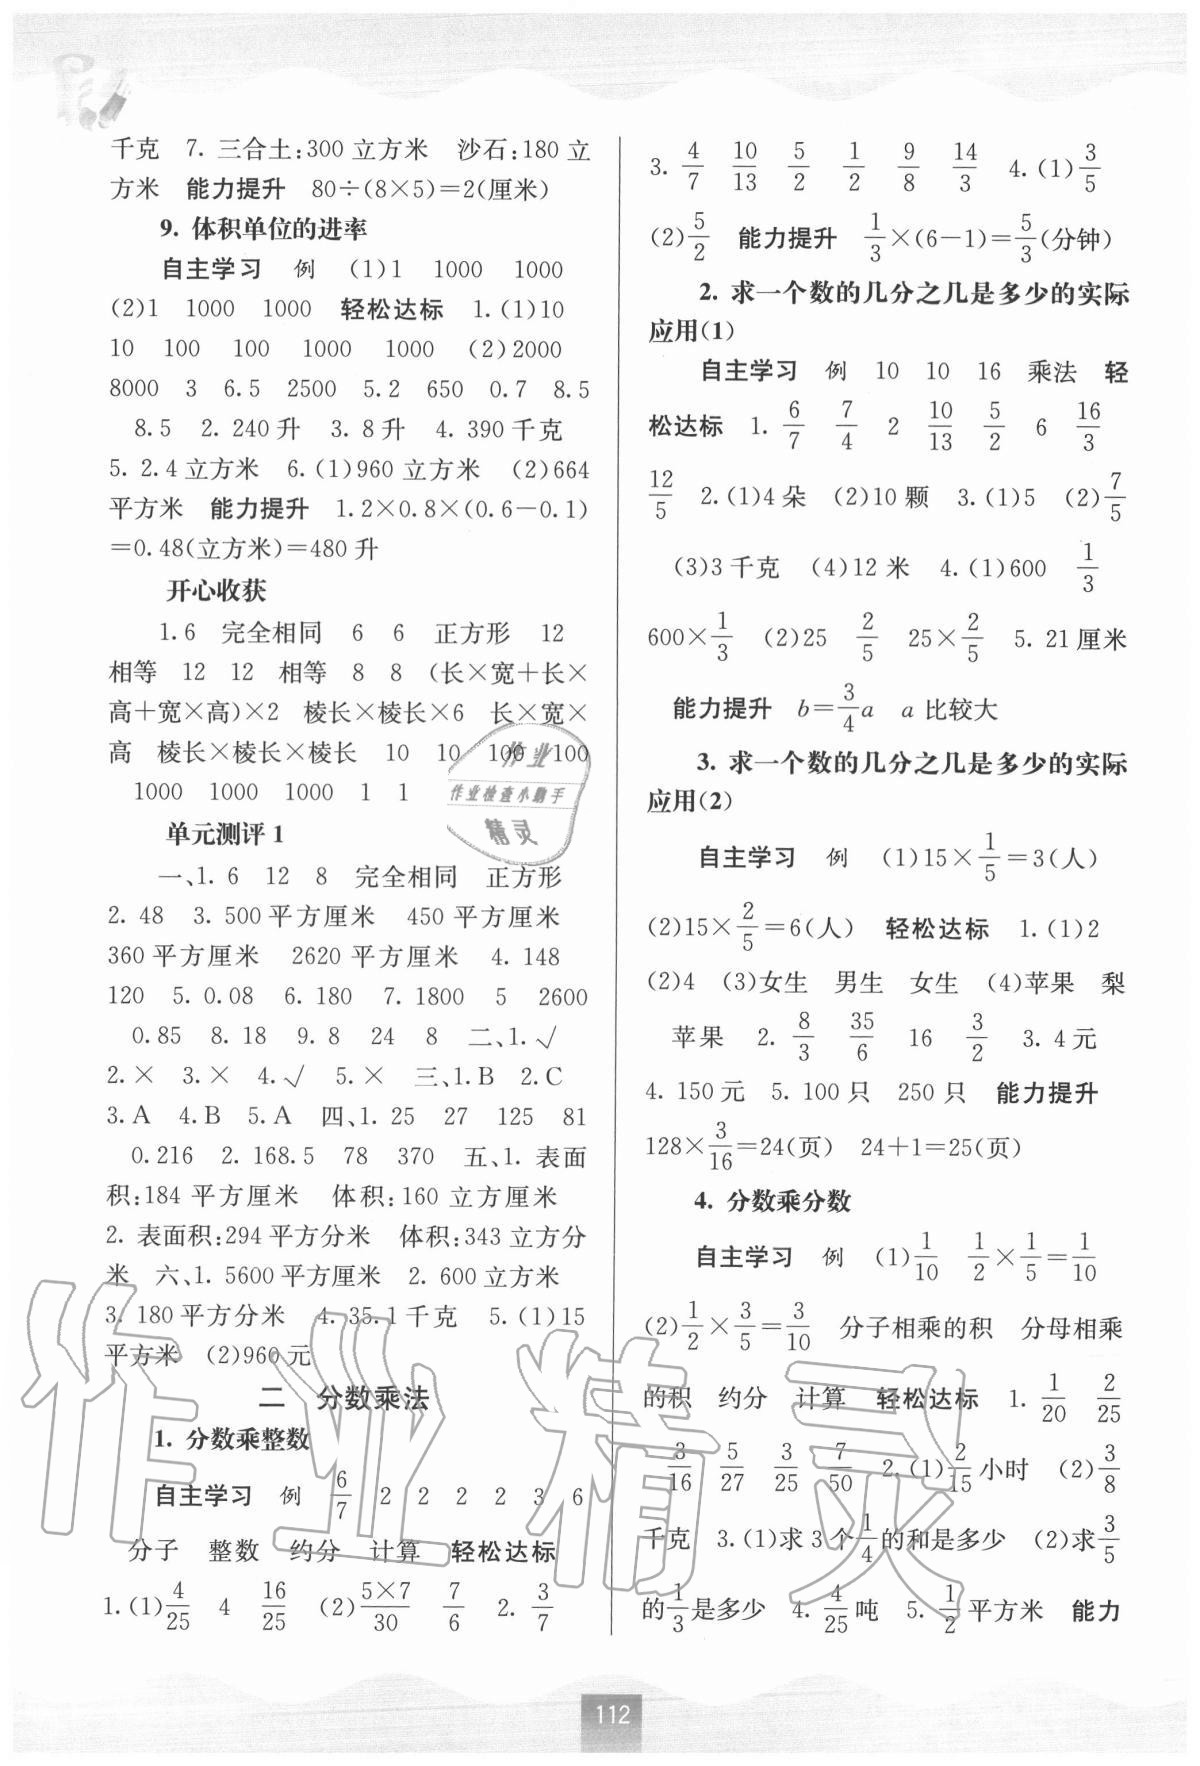 千克 7. 三合土:300 立方米 沙石:180 立
方米 能力提升 80÷(8×5)=2(厘米)
9. 体积单位的进率
自主学习 例 (1)1 1000 1000
(2)1 1000 1000 轻松达标 1.(1)10
10 100 100 1000 1000 (2)2000
8000 3 6.5 2500 5.2 650 0.7 8.5
8.5 2. 240 升 3. 8 升 4. 390 千克
5. 2.4 立方米 6.(1)960 立方米 (2)664
平方米 能力提升 1.2×0.8×(0.6-0.1)
=0.48(立方米)=480 升
开心收获
1. 6 完全相同 6 6 正方形 12
相等 12 12 相等 8 8 (长×宽+长×
高+宽×高)×2 棱长×棱长×6 长×宽×
高 棱长×棱长×棱长 10 10 100 100
1000 1000 1000 1 1
单元测评 1
一、1. 6 12 8 完全相同 正方形
2. 48 3. 500 平方厘米 450 平方厘米
360 平方厘米 2620 平方厘米 4. 148
120 5. 0.08 6. 180 7. 1800 5 2600
0.85 8. 18 9. 8 24 8 二、1. √
2. × 3. × 4. √ 5. × 三、1. B 2. C
3. A 4. B 5. A 四、1. 25 27 125 81
0.216 2. 168.5 78 370 五、1. 表面
积:184 平方厘米 体积:160 立方厘米
2. 表面积:294 平方分米 体积:343 立方分
米 六、1. 5600 平方厘米 2. 600 立方米
3. 180 平方分米 4. 35.1 千克 5.(1)15
平方米 (2)960 元
二 分数乘法
1. 分数乘整数
自主学习 例 6/7 2 2 2 2 3 6
分子 整数 约分 计算 轻松达标
1.(1)4/25 4 16/25 (2)5×7/30 7/6 2. 3/7
3. 4/7 10/13 5/2 1/2 9/8 14/3 4.(1)3/5
(2)5/2 能力提升 1/3×(6-1)=5/3(分钟)
2. 求一个数的几分之几是多少的实际
应用(1)
自主学习 例 10 10 16 乘法 轻
松达标 1. 6/7 7/4 2 10/13 5/2 6 16/3
12/5 2.(1)4 朵 (2)10 颗 3.(1)5 (2)7/5
(3)3 千克 (4)12 米 4.(1)600 1/3
600×1/3 (2)25 2/5 25×2/5 5. 21 厘米
能力提升 b=3/4a a 比较大
3. 求一个数的几分之几是多少的实际
应用(2)
自主学习 例 (1)15×1/5=3(人)
(2)15×2/5=6(人) 轻松达标 1.(1)2
(2)4 (3)女生 男生 女生 (4)苹果 梨
苹果 2. 8/3 35/6 16 3/2 3. 4 元
4. 150 元 5. 100 只 250 只 能力提升
128×3/16=24(页) 24+1=25(页)
4. 分数乘分数
自主学习 例 (1)1/10 1/2×1/5=1/10
(2)1/2×3/5=3/10 分子相乘的积 分母相乘
的积 约分 计算 轻松达标 1. 1/20 2/25
3/16 5/27 3/25 7/50 2.(1)2/15小时 (2)3/8
千克 3.(1)求 3 个1/4的和是多少 (2)求3/5
的1/3是多少 4. 4/25吨 5. 1/2平方米 能力
112
作业
作业检查小助手
精灵
作业精灵